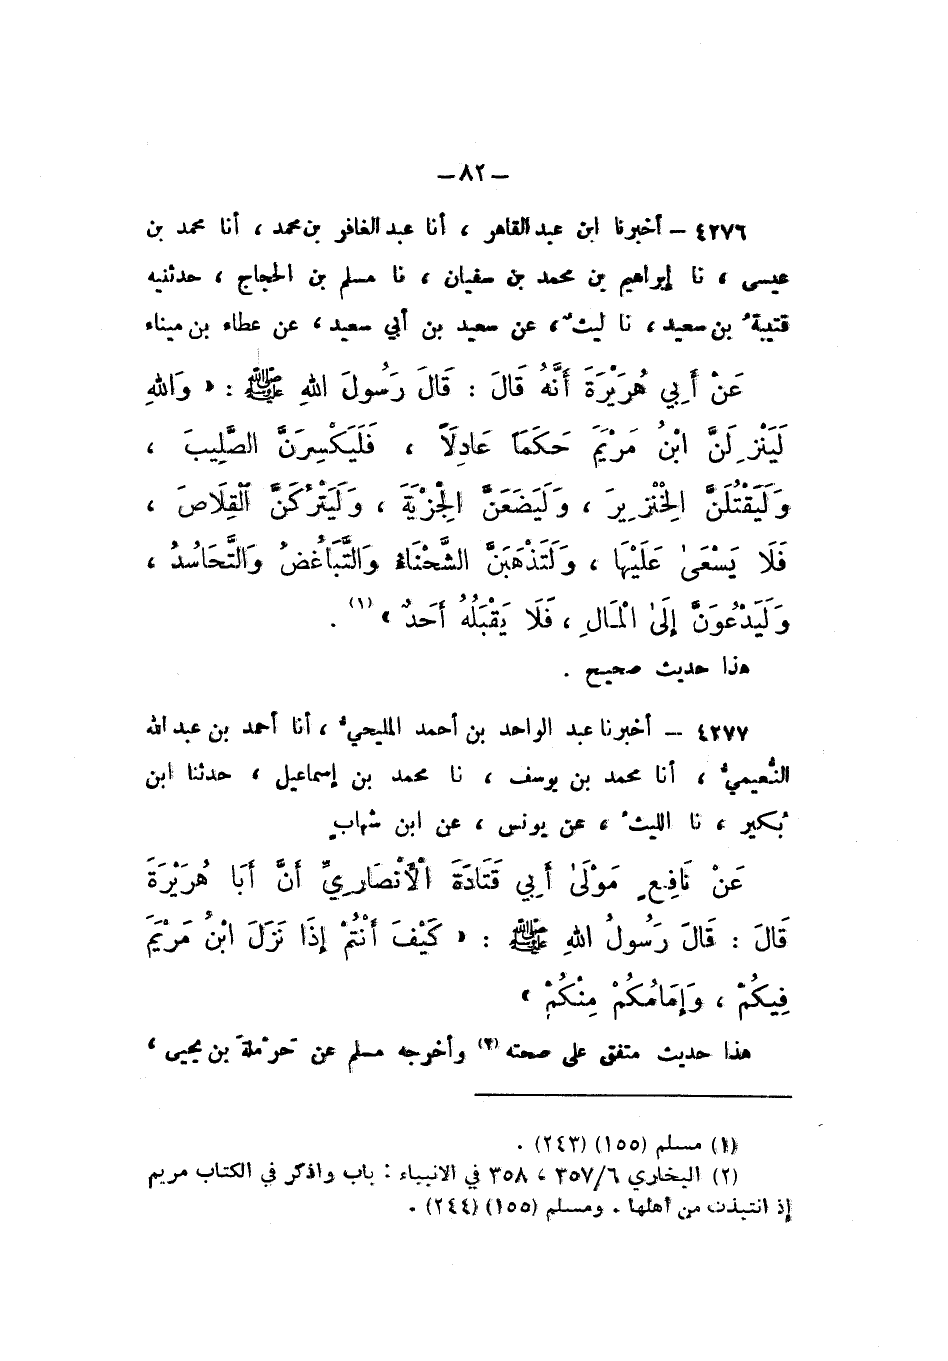 – ٨٢ –
٤٢٧٦ – أخبرنا ابن عبد القاهر ، أنا عبد الغافر بن محمد ، أنا محمد بن
عيسى ، نا إبراهيم بن محمد بن سفيان ، نا مسلم بن الحجاج ، حدثنيه
قتيبةُ بن سعيد ، نا ليثٌ ، عن سعيد بن أبي سعيد ، عن عطاء بن ميناء
عَنْ أَبِي هُرَيْرَةَ أَنَّهُ قَالَ : قَالَ رَسُولَ اللهِ ﷺ : « وَاللهِ
لَيَنْزِلَنَّ ابْنُ مَرْيَمَ حَكَمَاً عَادِلَاً ، فَلَيَكْسِرَنَّ الصَّلِيبَ ،
وَلَيَقْتُلَنَّ الْخِنْزِيرَ ، وَلَيَضَعَنَّ الْجِزْيَةَ ، وَلَيَتْرُكَنَّ الْقِلَاصَ ،
فَلَا يَسْعَىٰ عَلَيْهَا ، وَلَتَذْهَبَنَّ الشَّحْنَاءُ وَالتَّبَاغُضُ وَالتَّحَاسُدُ ،
وَلَيَدْعُوَنَّ إِلَىٰ الْمَالِ ، فَلَا يَقْبَلُهُ أَحَدٌ » (١) .
هذا حديث صحيح .
٤٢٧٧ – أخبرنا عبد الواحد بن أحمد المليحيُّ ، أنا أحمد بن عبد الله
النُّعيميُّ ، أنا محمد بن يوسف ، نا محمد بن إسماعيل ، حدثنا ابن
بُكير ، نا الليثُ ، عن يونس ، عن ابن شهابٍ
عَنْ نَافِعٍ مَوْلَىٰ أَبِي قَتَادَةَ الْأَنْصَارِيِّ أَنَّ أَبَا هُرَيْرَةَ
قَالَ : قَالَ رَسُولُ اللهِ ﷺ : « كَيْفَ أَنْتُمْ إِذَا نَزَلَ ابْنُ مَرْيَمَ
فِيكُمْ ، وَإِمَامُكُمْ مِنْكُمْ »
هذا حديث متفق على صحته (٢) وأخرجه مسلم عن حَرْملةَ بن يحيى ،
(١) مسلم (١٥٥) (٢٤٣) .
(٢) البخاري ٣٥٧/٦ ، ٣٥٨ في الانبياء : باب واذكر في الكتاب مريم
إذ انتبذت من أهلها . ومسلم (١٥٥) (٢٤٤) .